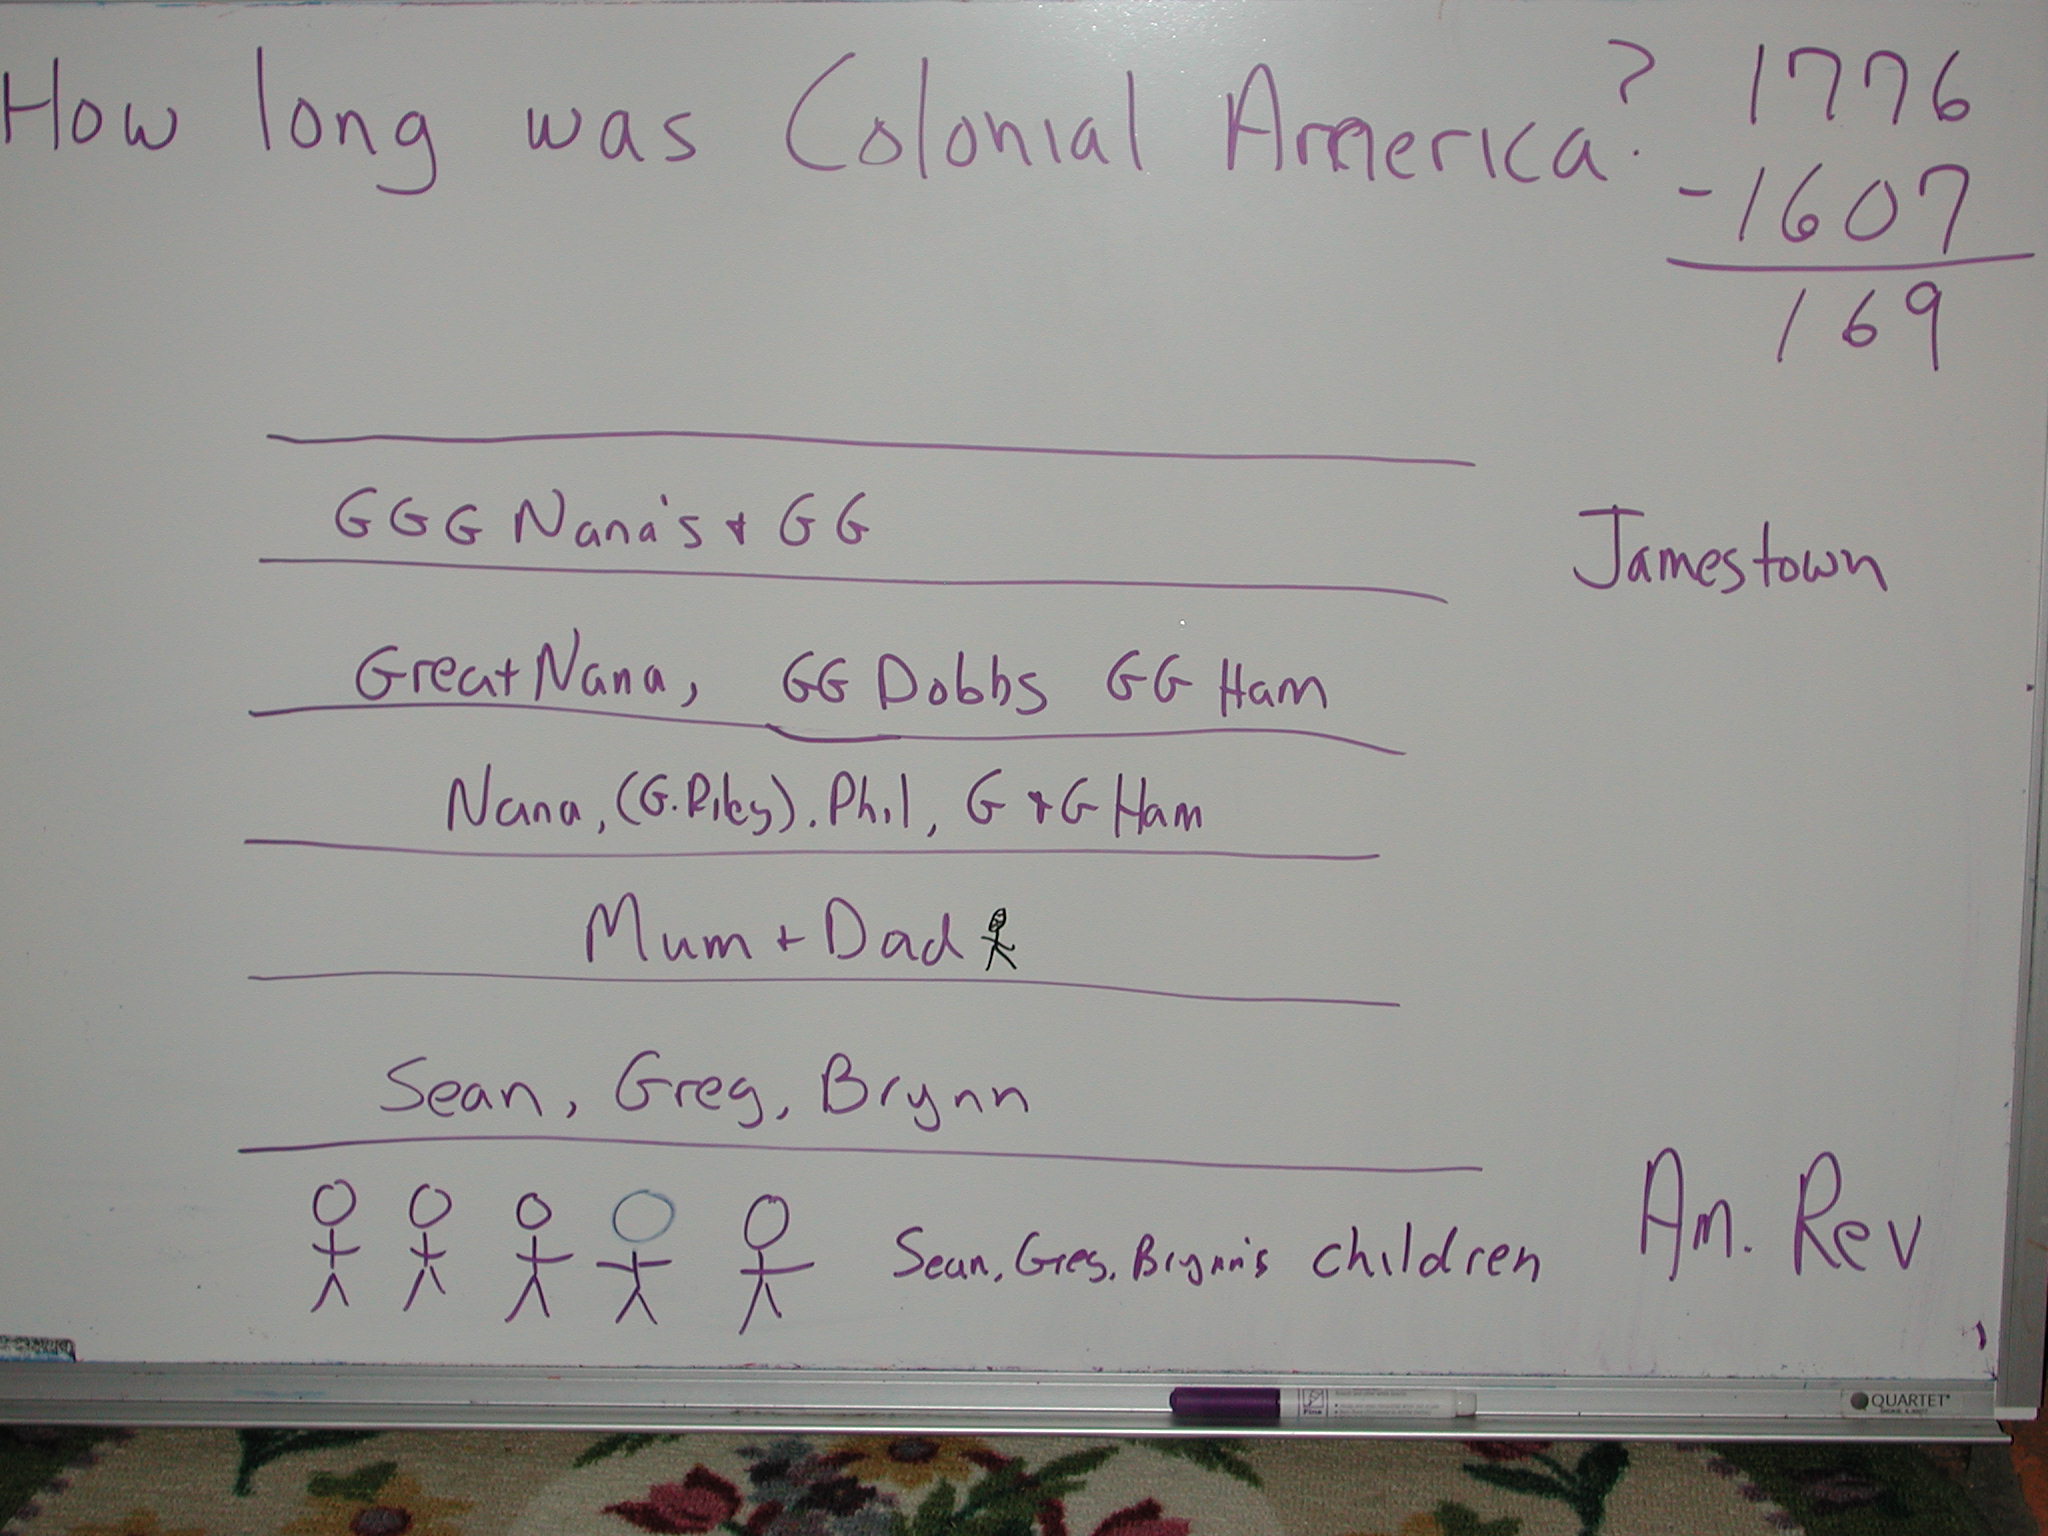 How long was Colonial America?
1776
-1607
169
GGG Nana's + GG
Jamestown
Great Nana, GG Dobbs GG Ham
Nana, (G. Riley). Phil, G + G Ham
Mum + Dad
Sean, Greg, Brynn
Sean, Greg, Brynn's children
Am. Rev
Fine
QUARTET